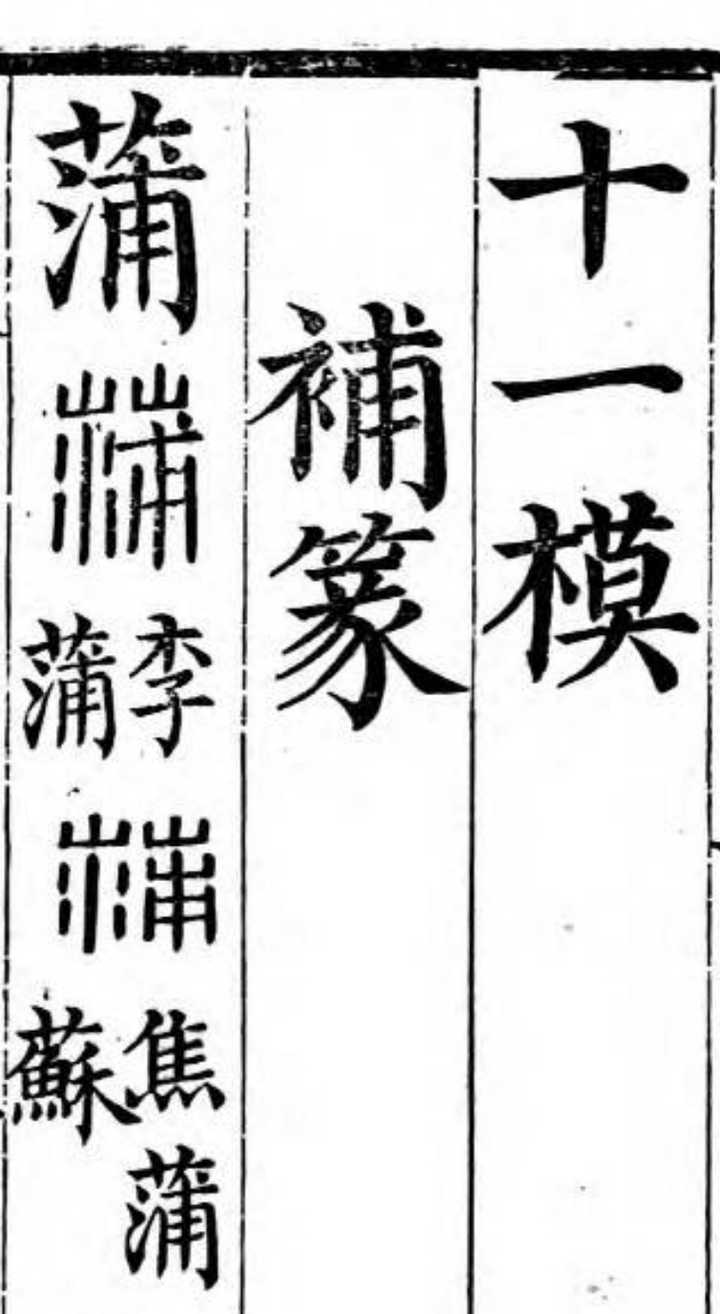 十一模
補篆
蒲 蒲 李蒲 蒲 焦蒲蘇